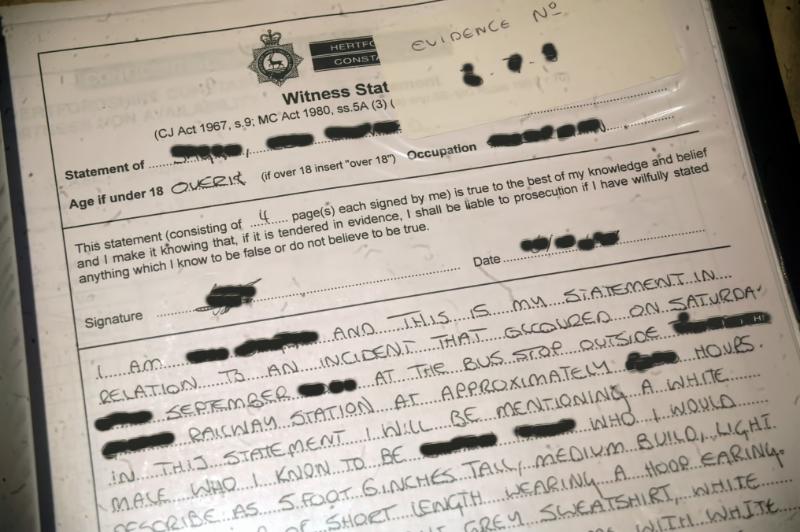 EVIDENCE Nº
HERTFO
CONSTA
Witness Stat
(CJ Act 1967, s.9; MC Act 1980, ss.5A (3) (
Statement of
Age if under 18 OVER 18 (if over 18 insert "over 18") Occupation
This statement (consisting of 4 page(s) each signed by me) is true to the best of my knowledge and belief
and I make it knowing that, if it is tendered in evidence, I shall be liable to prosecution if I have wilfully stated
anything which I know to be false or do not believe to be true.
Signature Date
I AM AND THIS IS MY STATEMENT IN
RELATION TO AN INCIDENT THAT OCCOURED ON SATURDA
SEPTEMBER AT THE BUS STOP OUTSIDE
RAILWAY STATION AT APPROXIMATELY HOURS.
IN THIS STATEMENT I WILL BE MENTIONING A WHITE
MALE WHO I KNOW TO BE WHO I WOULD
DESCRIBE AS 5 FOOT 6 INCHES TALL, MEDIUM BUILD, LIGHT
OF SHORT LENGTH WEARING A HOOP EARING.
GREY SWEATSHIRT, WHITE
WITH WHITE